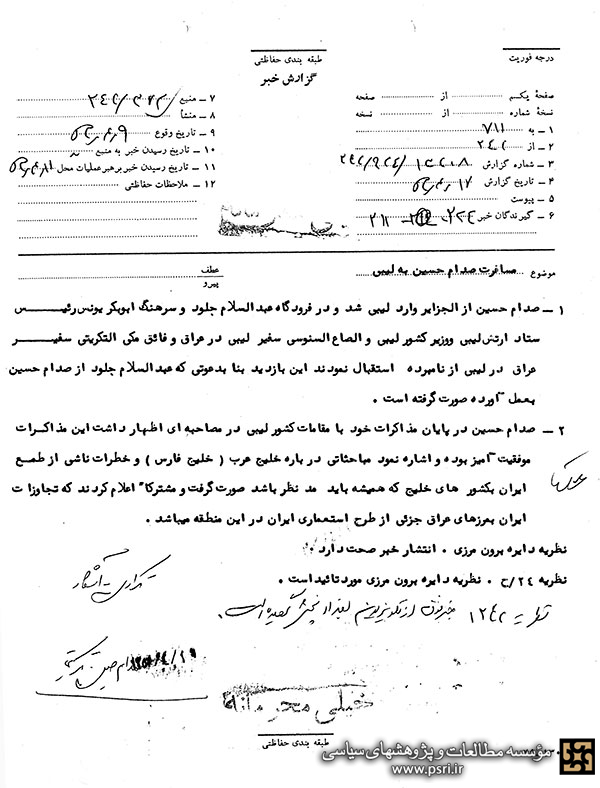 درجه فوریت
طبقه بندی حفاظتی
گزارش خبر
صفحهٔ یکم از صفحه
نسخهٔ شماره از نسخه
۱ ـ به ۷۱۱
۲ ـ از
۳ ـ شماره گزارش
۴ ـ تاریخ گزارش
۵ ـ پیوست
۶ ـ گیرندگان خبر
۷ ـ منبع
۸ ـ منشأ
۹ ـ تاریخ وقوع
۱۰ ـ تاریخ رسیدن خبر به منبع
۱۱ ـ تاریخ رسیدن خبر برهبر عملیات محل
۱۲ ـ ملاحظات حفاظتی
موضوع مسافرت صدام حسین به لیبی
عطف
پیرو
۱ ـ صدام حسین از الجزایر وارد لیبی شد و در فرودگاه عبدالسلام جلود و سرهنگ ابوبکر یونس رئیس
ستاد ارتش لیبی و وزیر کشور لیبی و الصاع السنوسی سفیر لیبی در عراق و فائق مکی التکریتی سفیر
عراق در لیبی از نامبرده استقبال نمودند این بازدید بنا بدعوتی که عبدالسلام جلود از صدام حسین
بعمل آورده صورت گرفته است .
۲ ـ صدام حسین در پایان مذاکرات خود با مقامات کشور لیبی در مصاحبه ای اظهار داشت این مذاکرات
موفقیت آمیز بوده و اشاره نمود مباحثاتی در باره خلیج عرب ( خلیج فارس ) و خطرات ناشی از طمع
ایران بکشور های خلیج که همیشه باید مد نظر باشد صورت گرفت و مشترکاً اعلام کردند که تجاوزات
ایران بمرزهای عراق جزئی از طرح استعماری ایران در این منطقه میباشد .
نظریه دایره برون مرزی . انتشار خبر صحت دارد .
نظریه ۲۴/ح . نظریه دایره برون مرزی مورد تائید است .
نظریه ۱۲۴۲ خبر فوق از تلویزیون بغداد پخش گردیده است.
خیلی محرمانه
طبقه بندی حفاظتی
مؤسسه مطالعات و پژوهشهای سیاسی
www.psri.ir